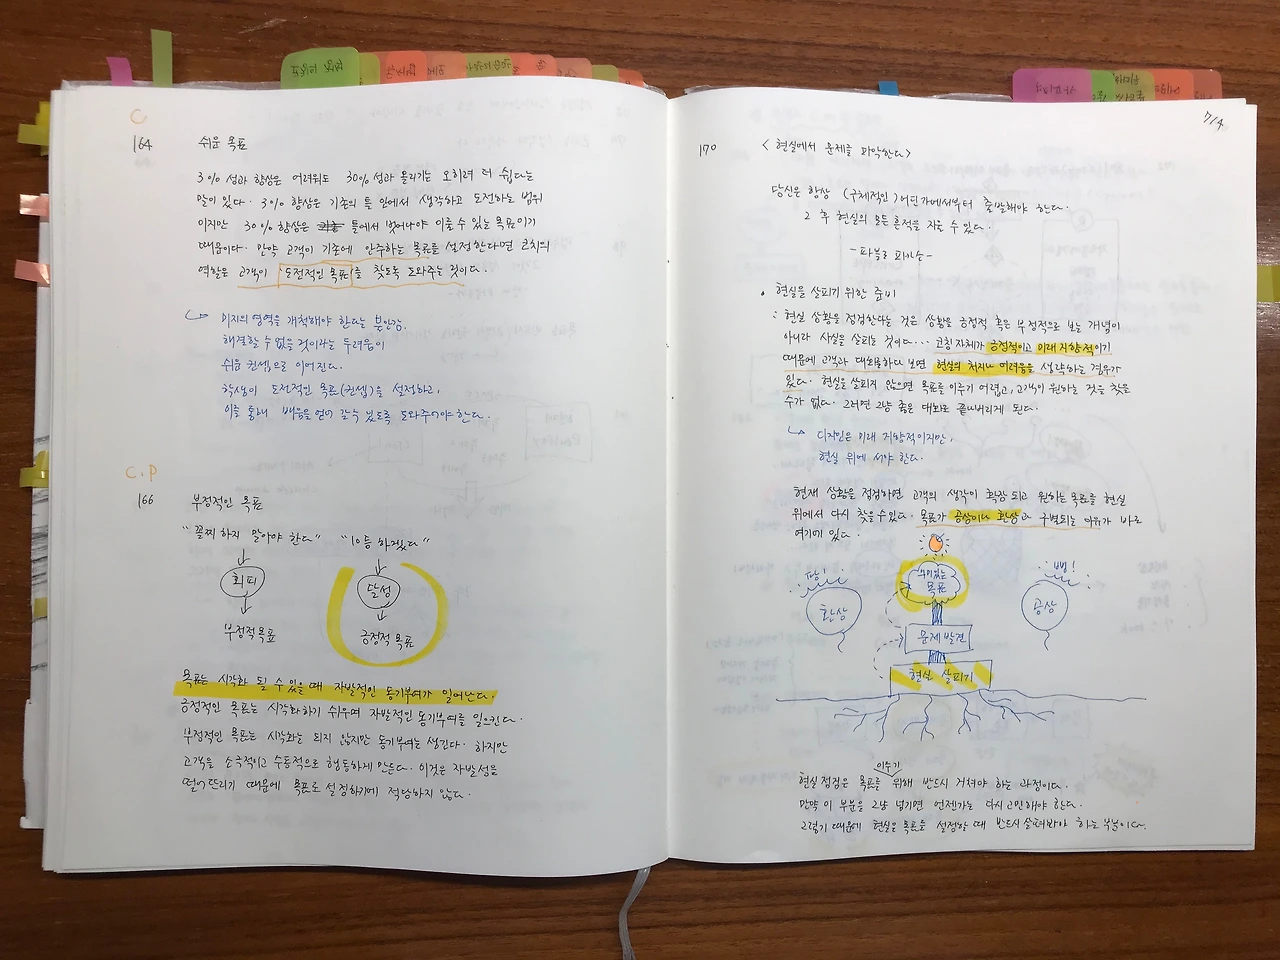 C
164 쉬운 목표
3% 성과 향상은 어려워도 30% 성과 올리기는 오히려 더 쉽다는
말이 있다. 3% 향상은 기존의 틀 안에서 생각하고 도전하는 범위
이지만 30% 향상은 틀에서 벗어나야 이룰 수 있는 목표이기
때문이다. 만약 고객이 기존에 안주하는 목표를 설정한다면 코치의
역할은 고객이 도전적인 목표를 찾도록 도와주는 것이다.
미지의 영역을 개척해야 한다는 불안감,
해결할 수 없을 것이라는 두려움이
쉬운 컨셉으로 이어진다.
학생이 도전적인 목표(컨셉)을 설정하고,
이를 통해 배움을 얻어 갈 수 있도록 도와주어야 한다.
C.P
166 부정적인 목표
"꼴찌 하지 말아야 한다" "10등 하겠다"
회피 달성
부정적 목표 긍정적 목표
목표는 시각화 될 수 있을 때 자발적인 동기부여가 일어난다.
긍정적인 목표는 시각화하기 쉬우며 자발적인 동기부여를 일으킨다.
부정적인 목표는 시각화는 되지 않지만 동기부여는 생긴다. 하지만
고객을 소극적이고 수동적으로 행동하게 만든다. 이것은 자발성을
떨어뜨리기 때문에 목표로 설정하기에 적당하지 않다.
7/4
170 <현실에서 문제를 파악한다>
당신은 항상 (구체적인) 어떤가에서부터 출발해야 한다.
그 후 현실의 모든 흔적을 지울 수 있다.
- 파블로 피카소 -
• 현실을 살피기 위한 준비
: 현실 상황을 점검한다는 것은 상황을 긍정적 혹은 부정적으로 보는 개념이
아니라 사실을 살피는 것이다... 코칭 자체가 긍정적이고 미래 지향적이기
때문에 고객과 대화하다 보면 현실의 처지나 어려움을 생략하는 경우가
있다. 현실을 살피지 않으면 목표를 이루기 어렵고, 고객이 원하는 것을 찾을
수가 없다. 그러면 그냥 좋은 대화로 끝나버리게 된다.
디자인은 미래 지향적이지만,
현실 위에 서야 한다.
현재 상황을 점검하면 고객의 생각이 확장 되고 원하는 목표를 현실
위에서 다시 찾을 수 있다. 목표가 공상이나 환상과 구별되는 이유가 바로
여기에 있다.
팡! 뻥!
환상 의미있는 목표 공상
문제 발견
현실 살피기
이루기
현실 점검은 목표를 위해 반드시 거쳐야 하는 과정이다.
만약 이 부분을 그냥 넘기면 언젠가는 다시 고민해야 한다.
그렇기 때문에 현실은 목표를 설정할 때 반드시 살펴봐야 하는 부분이다.